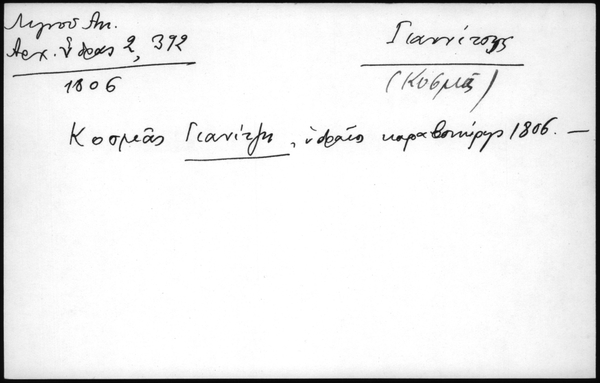 Λιγνοῦ Ἀν.
Ἀρχ. Ὕδρας 2, 392
1806
Γιαννίτσης
(Κοσμᾶς)
Κοσμᾶς Γιανίτζη, ὑδραῖο καραβοκύρης 1806. —